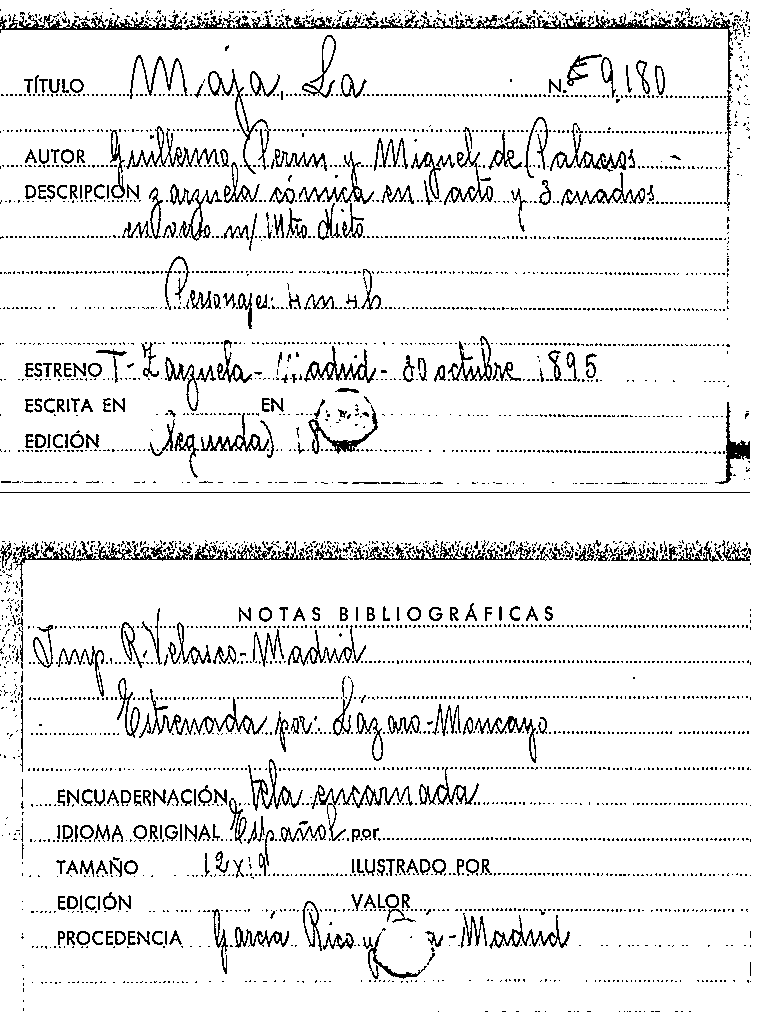 TÍTULO Maja, La N.º E 9.180
AUTOR Guillermo Perrin y Miguel de Palacios -
DESCRIPCIÓN zarzuela cómica en 1 acto y 3 cuadros
en verso m/ Mtro Nieto
Personajes: 4m 4h
ESTRENO T- Zarzuela - Madrid - 30 octubre 1895
ESCRITA EN EN
EDICIÓN (Segunda) 18
NOTAS BIBLIOGRÁFICAS
Imp. R. Velasco - Madrid
Estrenada por: Lázaro - Moncayo
ENCUADERNACIÓN tela encarnada
IDIOMA ORIGINAL Español por
TAMAÑO 12x19 ILUSTRADO POR
EDICIÓN VALOR
PROCEDENCIA García Rico y - Madrid